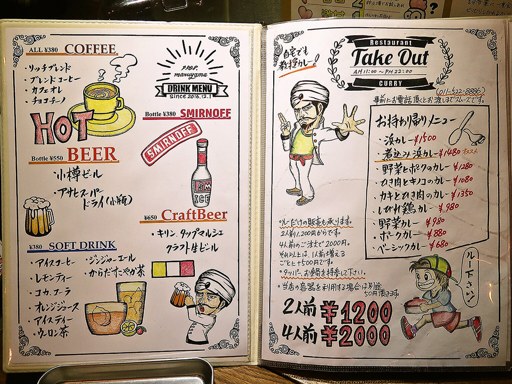 ALL ¥380 COFFEE
・リッチブレンド
・ブレンドコーヒー
・カフェオレ
・チョコチーノ
HOT
DRINK MENU
Since 2016.12.1
Bottle ¥380 SMIRNOFF
SMIRNOFF
Bottle ¥550 BEER
・小樽ビール
・アサヒスーパー
ドライ(小瓶)
¥650 CraftBeer
・キリン タップマルシェ
クラフト生ビール
¥380 SOFT DRINK
・アイスコーヒー
・レモンティー
・コカ.コーラ
・オレンジジュース
・アイスティー
・ウーロン茶
・ジンジャーエール
・からだすこやか茶
自宅でも
奥芝カレー!
Restaurant
Take Out
AM 11:00 ~ PM 22:00
CURRY
お持ち帰りメニュー
・浜カレー ¥1500
・煮込み浜カレー ¥1480
・野菜とポークのカレー ¥1280
・ひき肉とキノコのカレー ¥1080
・カキとひき肉のカレー ¥1350
・しびれ鶏カレー ¥980
・野菜カレー ¥980
・ポークカレー ¥880
・ベーシックカレー ¥680
・ルーだけの販売も承ります。
2人前 1200円からです。
4人前のご注文で2000円。
それ以上は、1人前増える
ごとに+500円です。
2人前 ¥1200
4人前 ¥2000
ルー下さーい